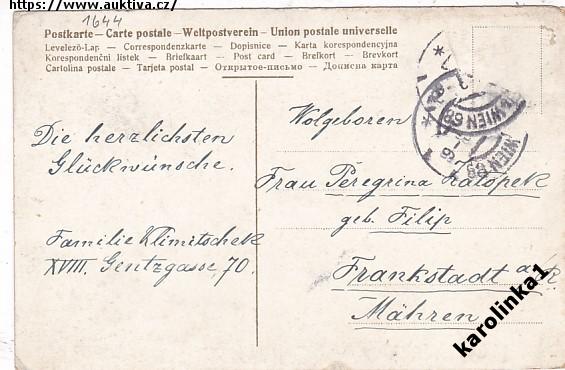 https://www.auktiva.cz/
1644
Postkarte — Carte postale — Weltpostverein — Union postale universelle
Levelező-Lap — Correspondenzkarte — Dopisnice — Karta korespondencyjna
Korespondenční lístek — Briefkaart — Post card — Brefkort — Brevkort
Cartolina postale — Tarjeta postal — Открытое-письмо — Дописна карта
Die herzlichsten
Glückwünsche.
Familie Klimitschek
XVIII. Gentzgasse 70.
Wolgeboren
Frau Peregrina Zatopek
geb. Filip
Frankstadt a/R.
Mähren
WIEN 68
WIEN 68
karolinka1